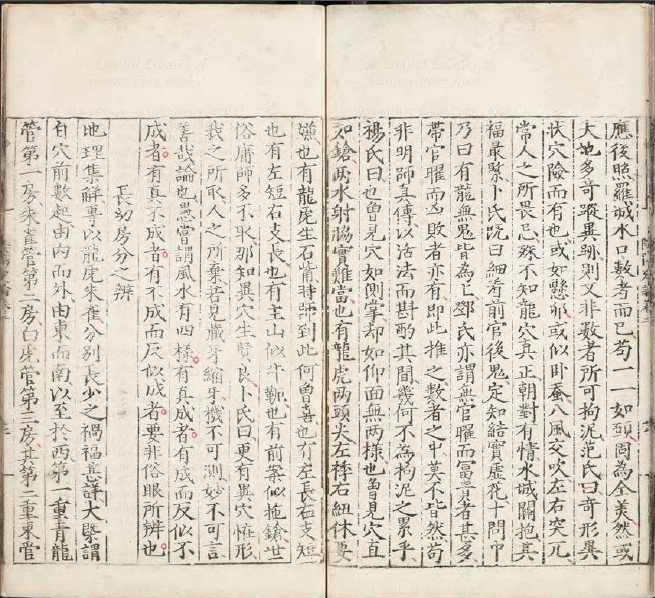 應後照羅城水口數者而已苟一一如頭固為全美然或
大地多奇蹤異跡則又非數者所可拘泥范氏曰奇形異
狀穴險而有也或如懸　或似卧蚕八風交吹左右突兀
常人之所畏忌殊不知龍穴真正朝對有情水城關抱真
福最緊卜氏阮曰細看前官後鬼定知結實虛花十問中
乃曰有龍無鬼皆為亡鄧氏亦謂無官曜而富貴者甚多
帶官曜而凶敗者亦有即此推之數者之中莫不皆然苟
非明師真傳以活法而斟酌其間幾何不為拘泥之累乎
楊氏曰也曾見穴如側掌却如仰面無兩樣也曾見穴直
如鎗兩水射脇實難當也有龍虎兩頭尖左　右紐休要
嫌也有龍虎生石　時師到此何曾喜也有左長右支短
也有左短右支長也有主山似牛軛也有前案似拖鎗世
俗庸師多不取那知異穴生賢良卜氏曰更有異穴恠形
我之所取人之所棄若見藏牙縮牙機不可測妙不可言
善哉論也愚嘗謂風水有四樣有真成者有成而反似不
成者有真不成者有不成而反似成者要非俗眼所辨也
長幼房分之辨
地理集解專以龍虎朱雀分別長少之禍福患詳大槩謂
自穴前數起由內而外由東而南以至於西第一重青龍
管第一房朱雀管第二房白虎管第三房其第二重東管